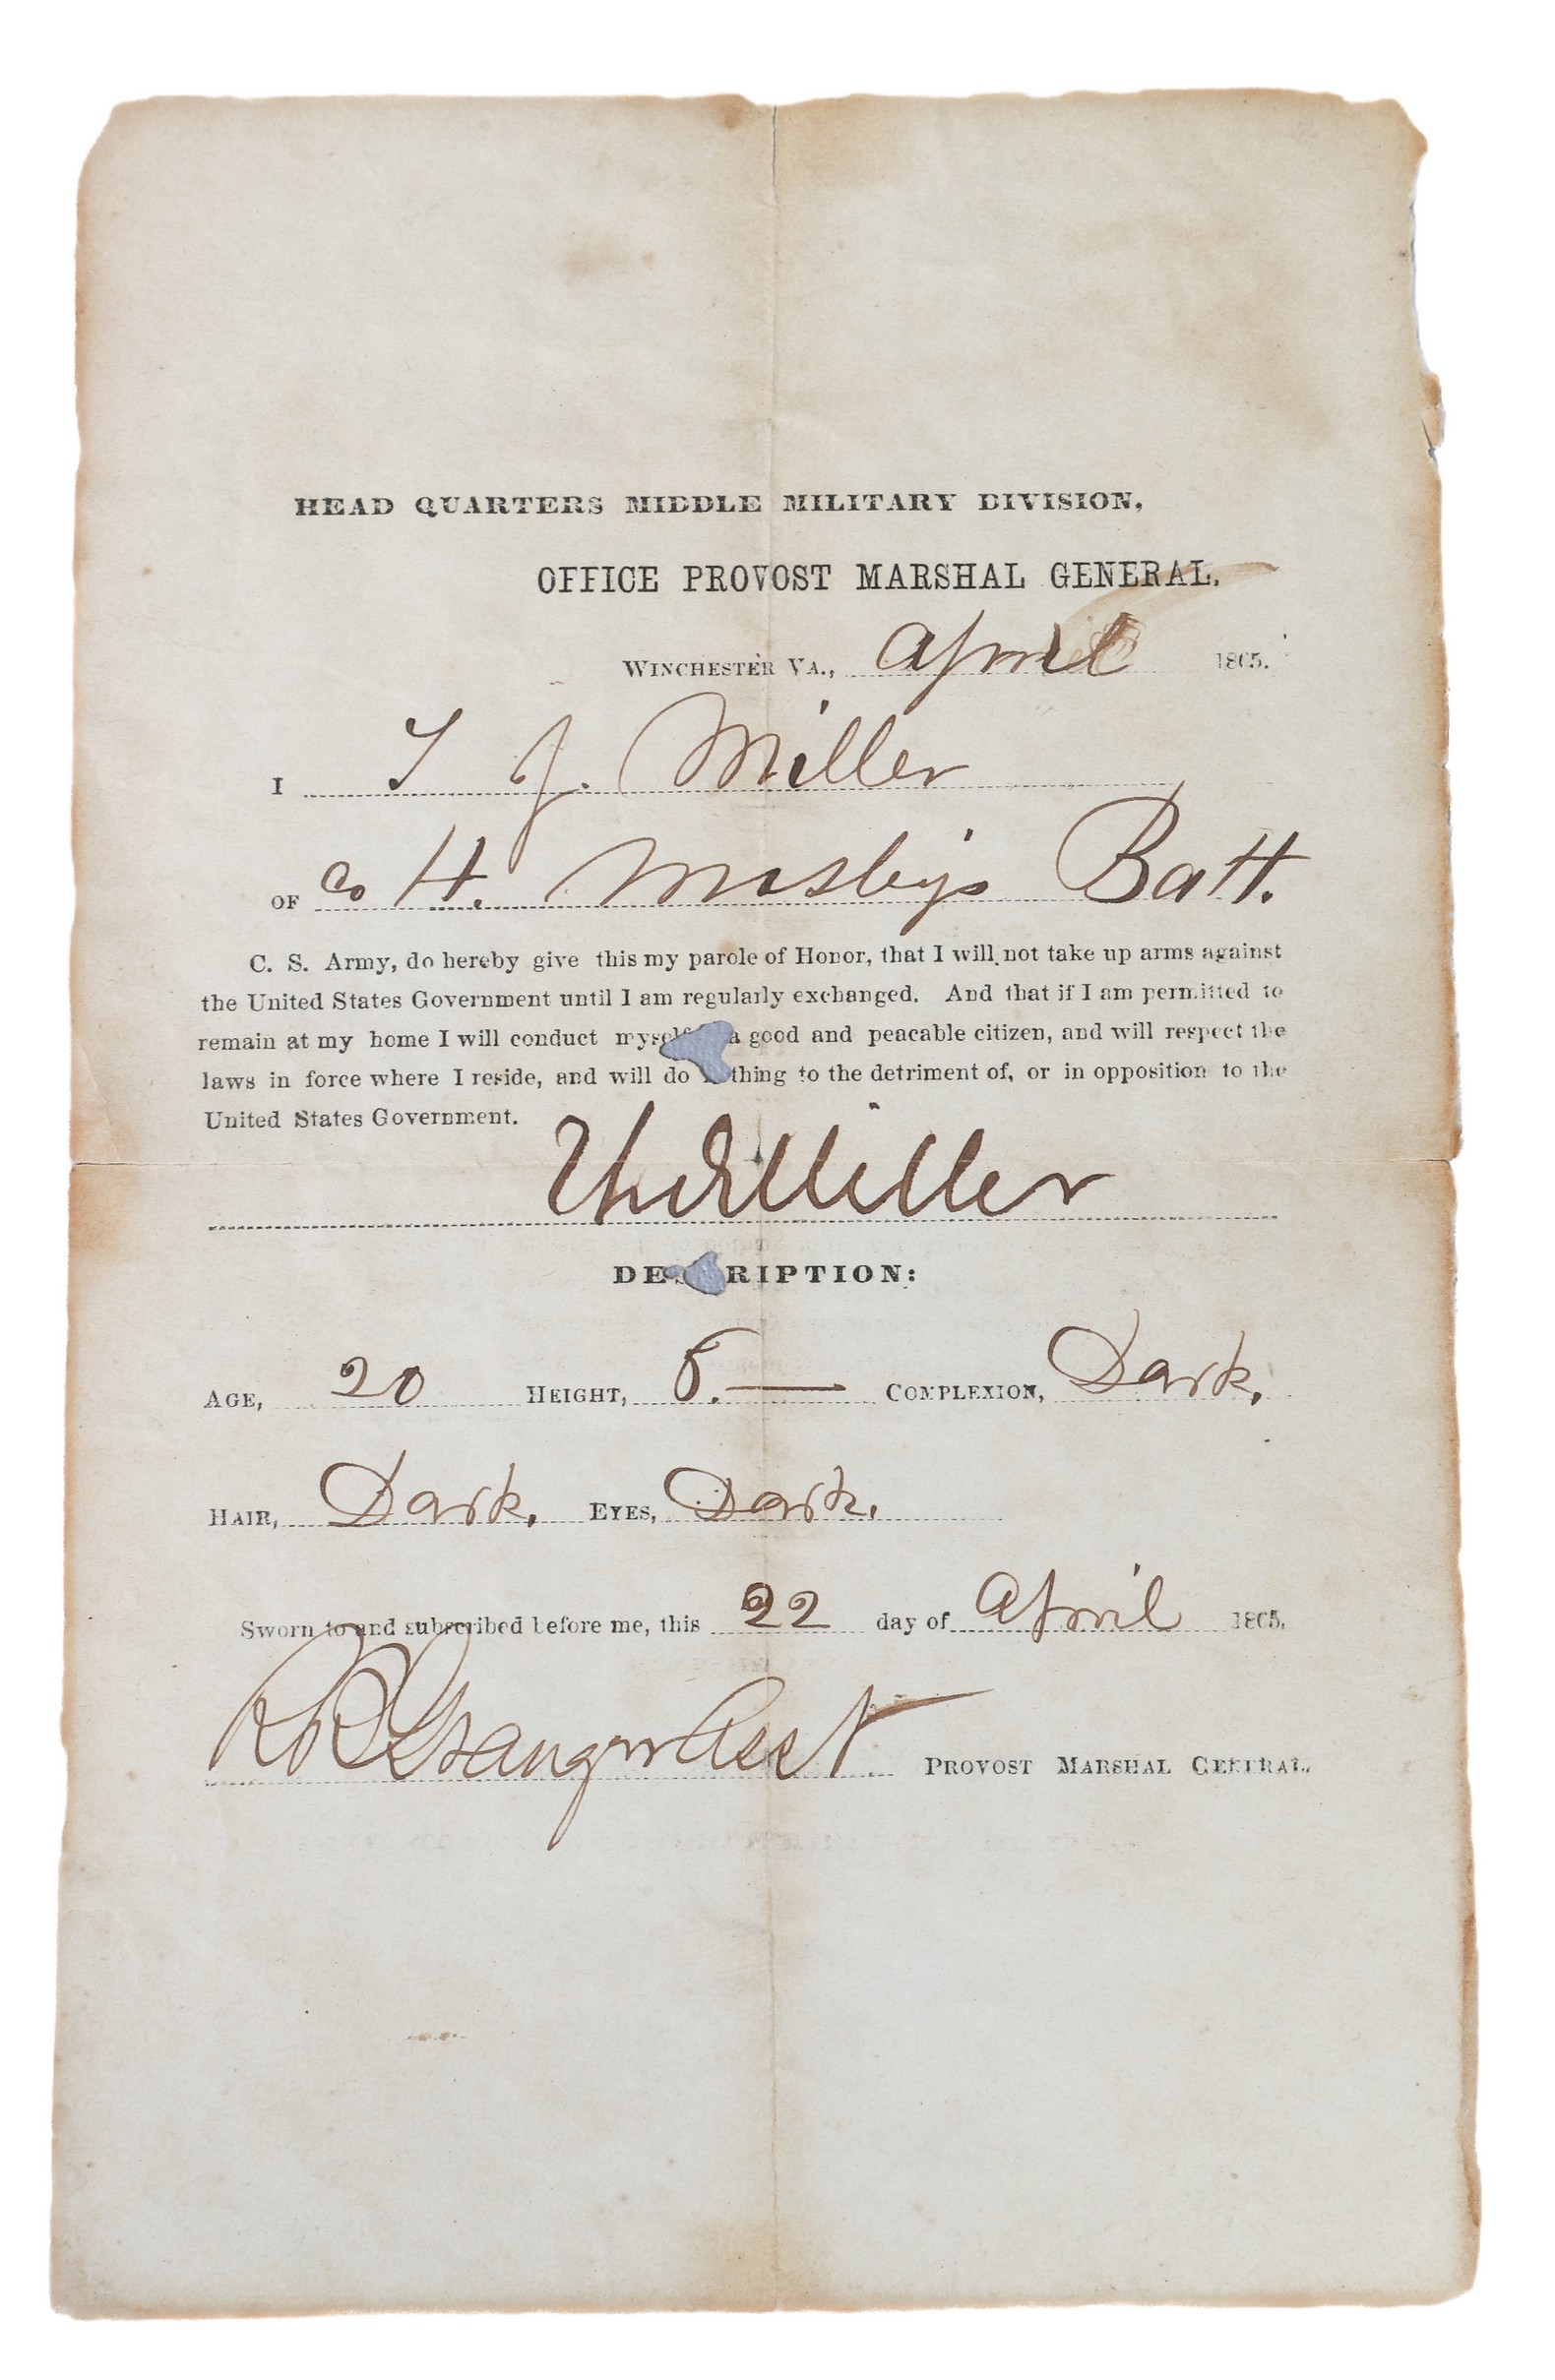 HEAD QUARTERS MIDDLE MILITARY DIVISION,
OFFICE PROVOST MARSHAL GENERAL.
WINCHESTER VA., April 1865.
I T J. Miller
OF Co H. Mosbys Batt.
C. S. Army, do hereby give this my parole of Honor, that I will not take up arms against
the United States Government until I am regularly exchanged. And that if I am permitted to
remain at my home I will conduct myself a good and peacable citizen, and will respect the
laws in force where I reside, and will do thing to the detriment of, or in opposition to the
United States Government.
Miller
DESCRIPTION:
AGE, 20 HEIGHT, 5. — COMPLEXION, Dark.
HAIR, Dark. EYES, Dark.
Sworn to and subscribed before me, this 22 day of April 1865.
Asst PROVOST MARSHAL GENERAL.